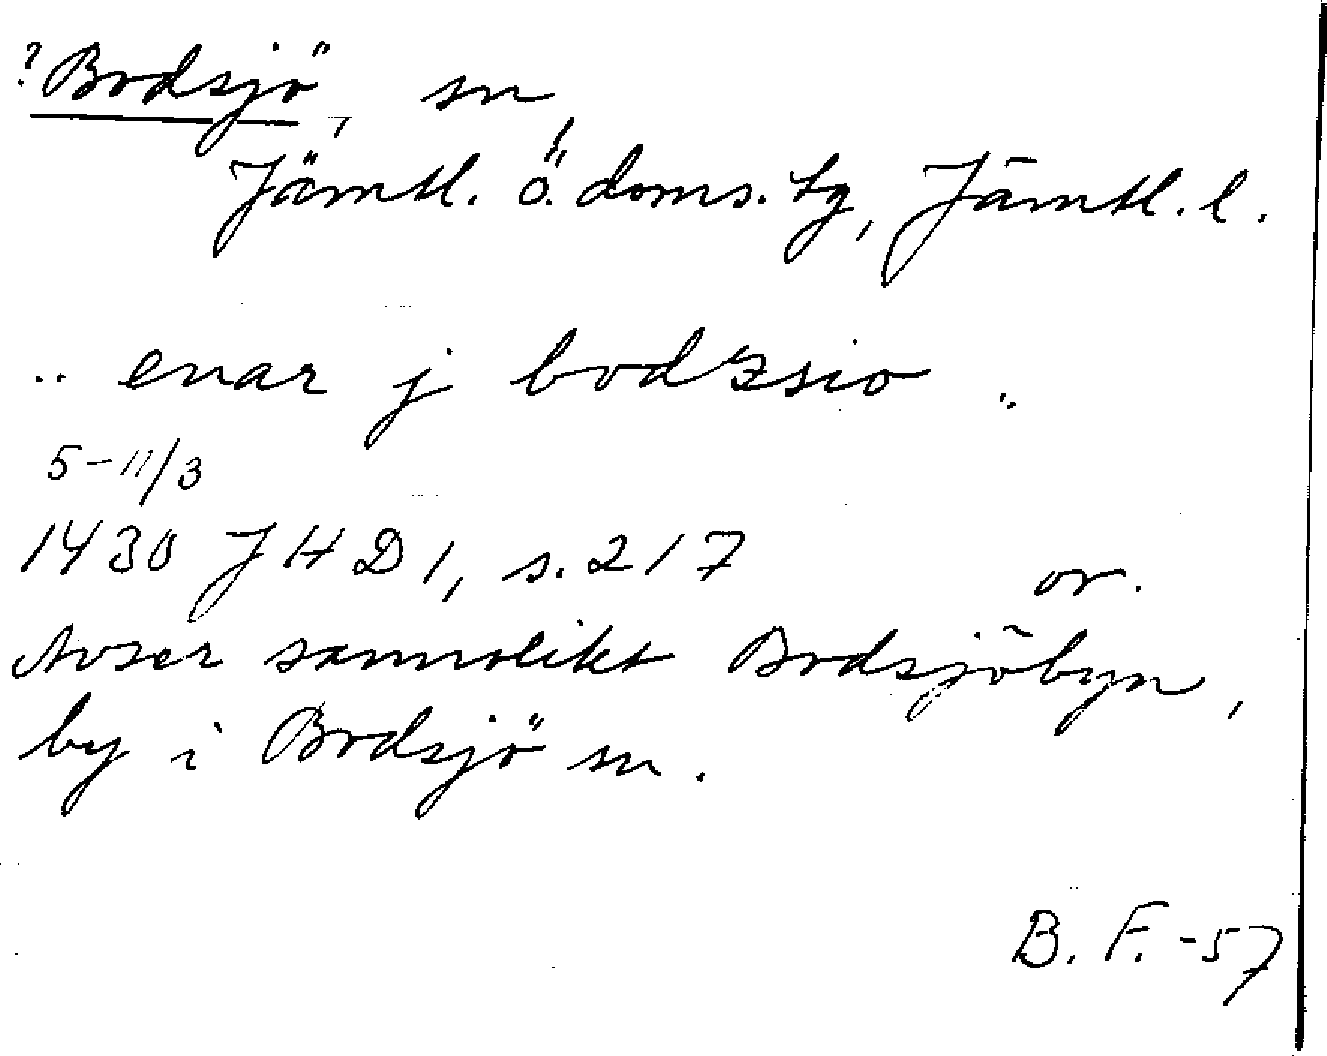 ?Bodsjö, sn,
Jämtl. ö. doms. tg, Jämtl. l.
.. enar j bodzsio ..
5-11/3
1430 JHD 1, s. 217 or.
Avser sannolikt Bodsjöbyn,
by i Bodsjö sn.
B. F. -57